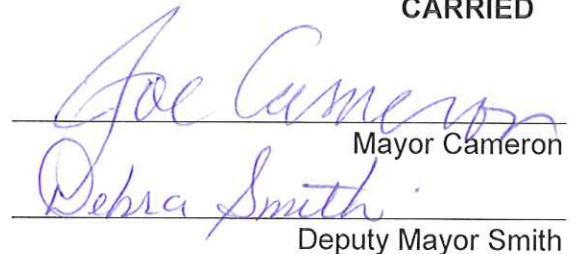 CARRIED
Joe Cameron
Mayor Cameron
Debra Smith
Deputy Mayor Smith